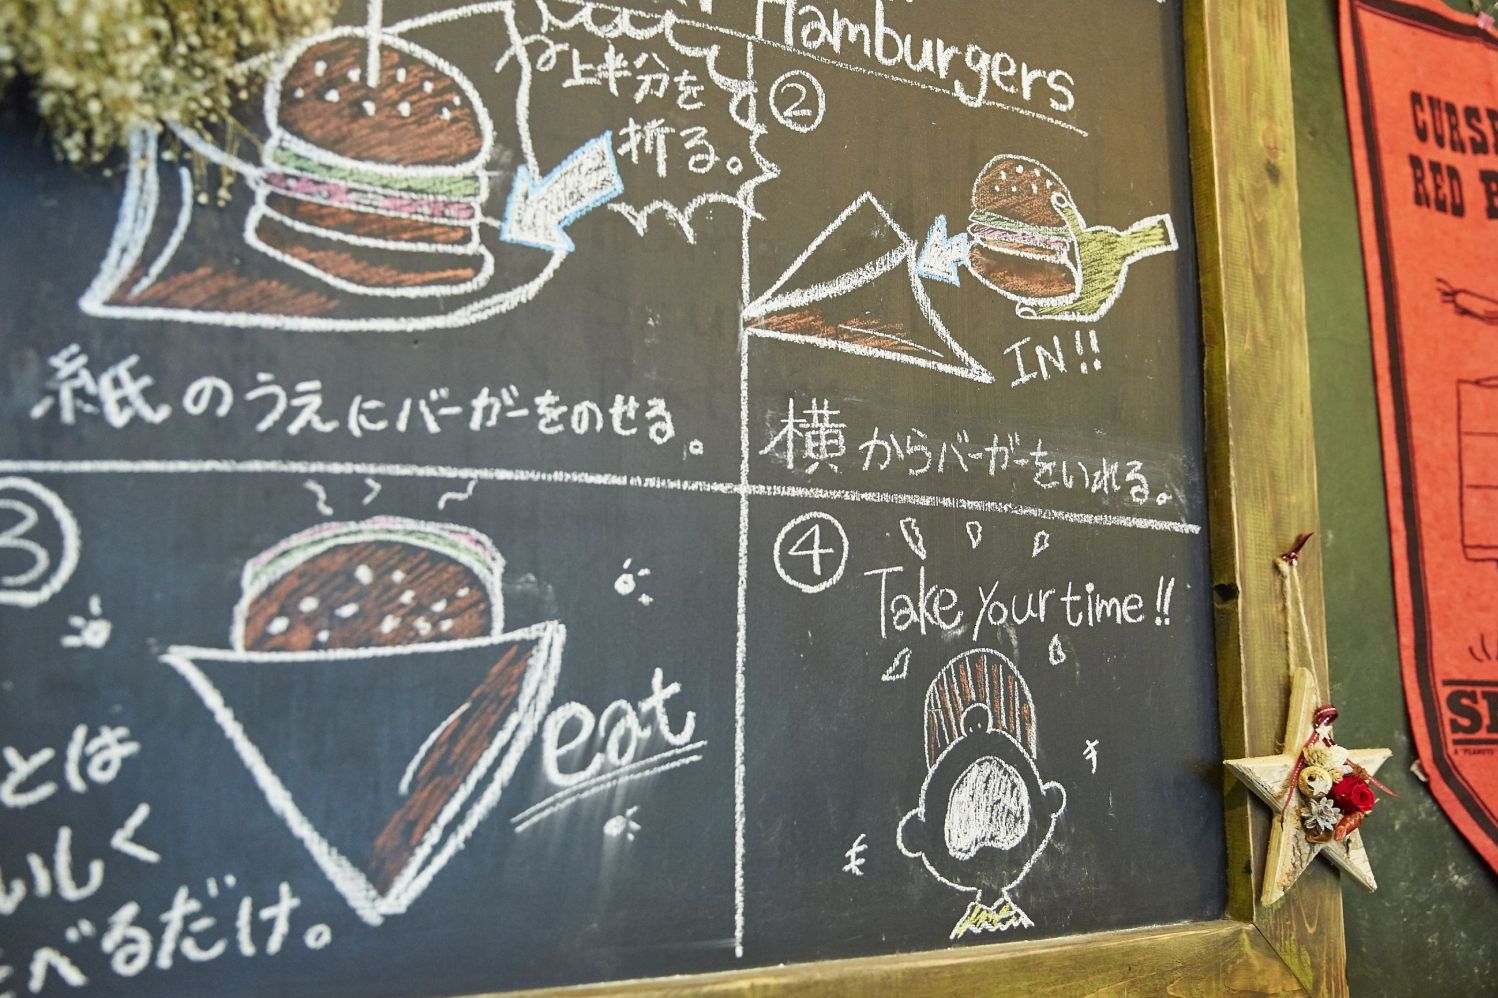 Hamburgers
上半分を
折る。
紙のうえにバーガーをのせる。
②
IN!!
横からバーガーをいれる。
③
eat
とは
いしく
べるだけ。
④
Take your time!!
CURSE
RED